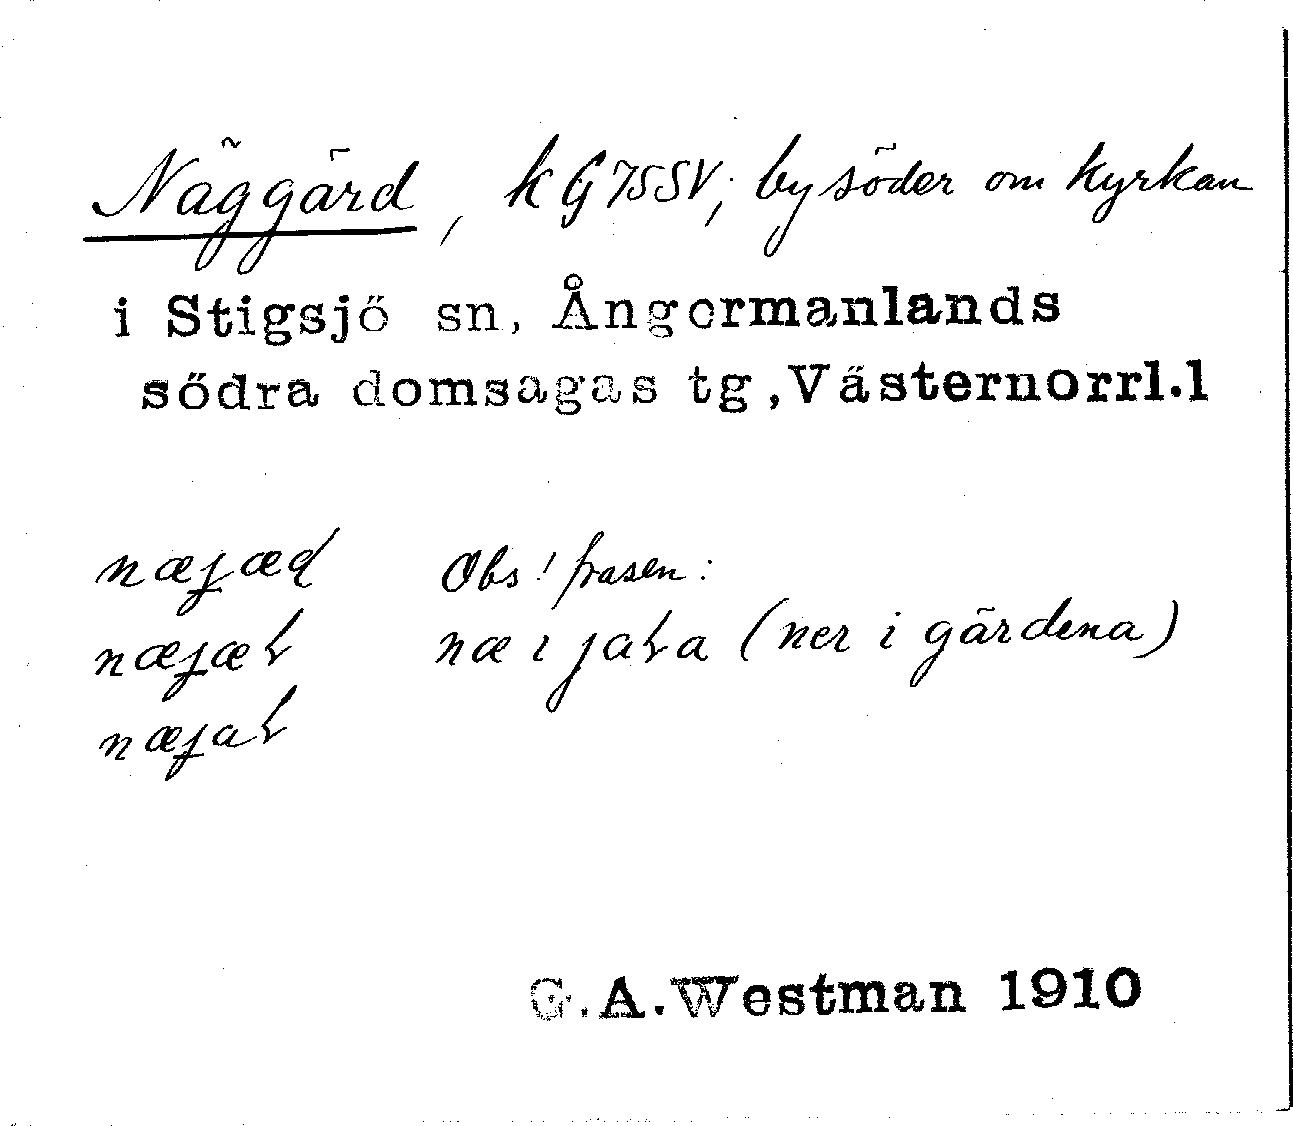 Näggärd, KG75SV; by söder om kyrkan
i Stigsjö sn, Ångermanlands
södra domsagas tg, Västernorrl.l
Obs! frasen:
(ner i gärdena)
G.A.Westman 1910